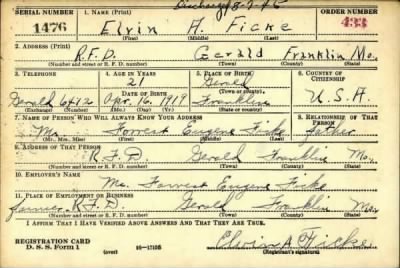 Discharged 8-7-45
SERIAL NUMBER 1. NAME (Print) ORDER NUMBER
1476 Elvin A. Ficke 433
(First) (Middle) (Last)
2. ADDRESS (Print)
R.F.D. Gerald Franklin Mo.
(Number and street or R. F. D. number) (Town) (County) (State)
3. TELEPHONE 4. AGE IN YEARS 5. PLACE OF BIRTH 6. COUNTRY OF CITIZENSHIP
21 Gerald
DATE OF BIRTH (Town or county)
Gerald 6412 Apr. 16, 1919 Franklin U.S.A.
(Exchange) (Number) (Mo.) (Day) (Yr.) (State or country)
7. NAME OF PERSON WHO WILL ALWAYS KNOW YOUR ADDRESS 8. RELATIONSHIP OF THAT PERSON
Mr. Forrest Eugene Ficke father
(Mr., Mrs., Miss) (First) (Middle) (Last)
9. ADDRESS OF THAT PERSON
R.F.D. Gerald Franklin Mo.
(Number and street or R. F. D. number) (Town) (County) (State)
10. EMPLOYER'S NAME
Mr. Forrest Eugene Ficke
11. PLACE OF EMPLOYMENT OR BUSINESS
farmer R.F.D. Gerald Franklin Mo.
(Number and street or R. F. D. number) (Town) (County) (State)
I AFFIRM THAT I HAVE VERIFIED ABOVE ANSWERS AND THAT THEY ARE TRUE.
REGISTRATION CARD
D. S. S. Form 1 16-17105 Elvin A Ficke
(Registrant's signature)